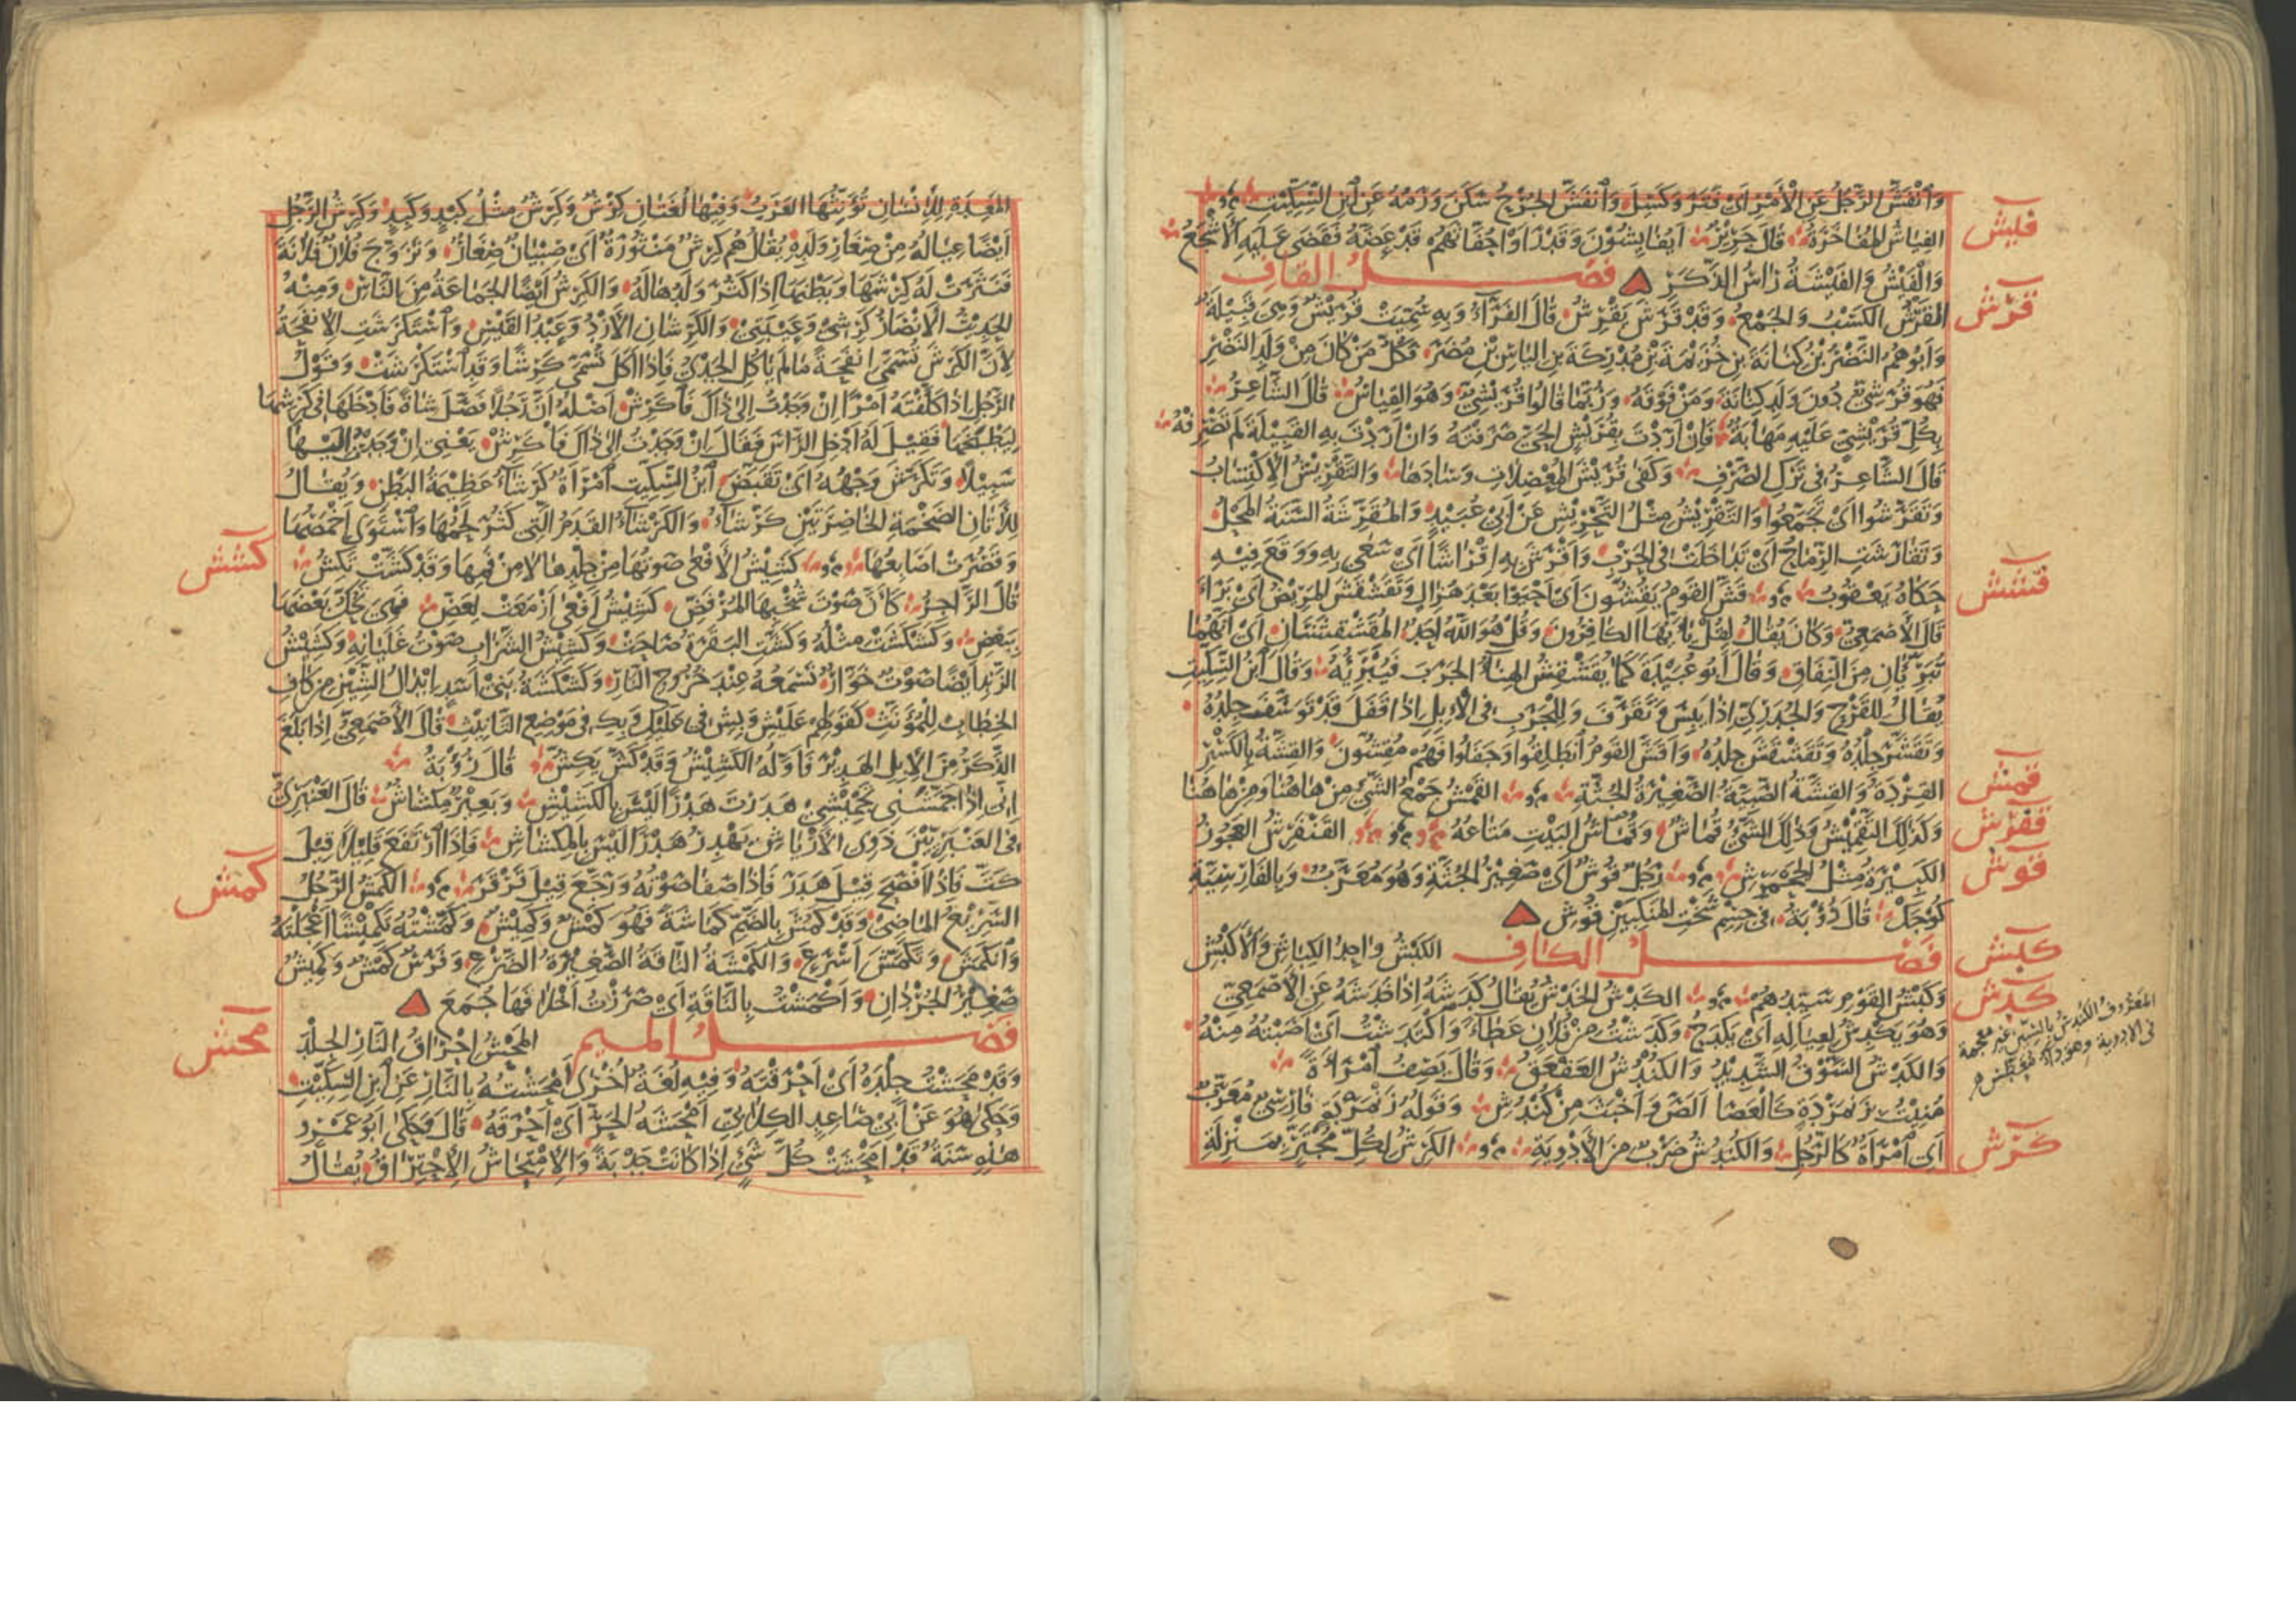 وَانْفَشَّ الرَّجُلُ عَنِ الْأَمْرِ أَيْ فَتَرَ وَكَسِلَ وَانْفَشَّ الجُرْحُ سَكَنَ وَرَمُهُ عَنِ ابْنِ السِّكِّيْتِ
فيش
الفِيَاشُ المُفَاخَرَةُ قَالَ جَرِيْرٌ أَيُفَايِشُوْنَ وَقَدْ رَأَوْا حُفَّاثَهُمْ قَدْ عَضَّهُ فَقَضَى عَلَيْهِ الْأَشْجَعُ
وَالْفَيْشُ وَالفَيْشَةُ رَاسُ الذَّكَرِ فصل القاف
قرش
القَرْشُ الكَسْبُ وَالجَمْعُ وَقَدْ قَرَشَ يَقْرِشُ قَالَ الفَرَّاءُ وَبِهِ سُمِّيَتْ قُرَيْشٌ وَهِيَ قَبِيْلَةٌ
وَأَبُوهُمُ النَّضْرُ بْنُ كِنَانَةَ بنِ خُزَيْمَةَ بْنِ مُدْرِكَةَ بنِ اليَاسِ بْنِ مُضَرَ فَكُلُّ مَنْ كَانَ مِنْ وَلَدِ النَّضْرِ
فَهُوَ قُرَشِيٌّ دُونَ وَلَدِ كِنَانَةَ وَمَنْ فَوْقَهُ وَرُبَّمَا قَالُوا قُرَيْشِيٌّ وَهُوَ القِيَاسُ قَالَ الشَّاعِرُ
بِكُلِّ قُرَيْشِيٍّ عَلَيْهِ مَهَابَةٌ فَإِنْ أَرَدْتَ بِقُرَيْشٍ الحَيَّ صَرَفْتَهُ وَإِنْ أَرَدْتَ بِهِ القَبِيْلَةَ لَمْ تَصْرِفْهُ
قَالَ الشَّاعِرُ فِي تَرْكِ الصَّرْفِ وَكَفَى قُرَيْشَ المُعْضِلَاتِ وَسَادَهَا وَالتَّقْرِيْشُ الاِكْتِسَابُ
وَتَقَرَّشُوا أَيْ تَجَمَّعُوا وَالتَّقْرِيْشُ مِثْلُ التَّحْرِيْشِ عَنْ أَبِي عُبَيْدٍ وَالمُقَرِّشَةُ السَّنَةُ المَحْلُ
وَتَقَارَشَتِ الرِّمَاحُ أَيْ تَدَاخَلَتْ فِي الحَرْبِ وَأَقْرَشَ بِهِ إِقْرَاشًا أَيْ سَعَى بِهِ وَوَقَعَ فِيْهِ
قشش
حَكَاهُ يَعْقُوبُ قَشَّ القَوْمُ يَقُشُّوْنَ أَيْ أَحْيَوْا بَعْدَ هُزَالٍ وَتَقَشْقَشَ المَرِيْضُ أَيْ بَرَأَ
قَالَ الأَصْمَعِيُّ وَكَانَ يُقَالُ لِقُلْ يَا أَيُّهَا الكَافِرُونَ وَقُلْ هُوَ اللهُ أَحَدٌ المُقَشْقِشَتَانِ أَيْ أَنَّهُمَا
تُبْرِئَانِ مِنَ النِّفَاقِ وَقَالَ أَبُو عُبَيْدَةَ كَمَا يُقَشْقِشُ الهِنَاءُ الجَرَبَ فَيُبْرِئُهُ وَقَالَ ابْنُ السِّكِّيْتِ
يُقَالُ لِلقَرْحِ وَالجُدَرِيِّ إِذَا يَبِسَ وَتَقَرَّفَ وَلِلْجَرَبِ فِي الإِبِلِ إِذَا قَفَلَ قَدْ تَوَسَّفَ جِلْدُهُ
وَتَقَشَّرَ جِلْدُهُ وَتَقَشْقَشَ جِلْدُهُ وَأَقَشَّ القَوْمُ انْطَلَقُوا وَجَفَلُوا فَهُمْ مُقِشُّونَ وَالقِشَّةُ بِالكَسْرِ
قمش
القِرْدَةُ وَالقِشَّةُ الصَّبِيَّةُ الصَّغِيْرَةُ الجُثَّةِ القَمْشُ جَمْعُ الشَّيْءِ مِنْ هَاهُنَا وَمِنْ هَاهُنَا
قفرش
وَكَذَلِكَ التَّقْمِيْشُ وَذَلِكَ الشَّيْءُ قُمَاشٌ وَقُمَاشُ البَيْتِ مَتَاعُهُ القَنْفَرِشُ العَجُوْزُ
قوش
الكَبِيْرَةُ مِثْلُ الجَحْمَرِشِ رَجُلٌ قُوْشٌ أَيْ صَغِيْرُ الجُثَّةِ وَهُوَ مُعَرَّبٌ وَبِالفَارِسِيَّةِ
كُوْجَكْ قَالَ رُؤْبَةُ فِي جِسْمِ شَخْتِ المَنْكِبَيْنِ قُوْشِ
كبش
فصل الكاف الكَبْشُ وَاحِدُ الكِبَاشِ وَالأَكْبُشِ
كدش
وَكَبْشُ القَوْمِ سَيِّدُهُمْ الكَدْشُ الخَدْشُ يُقَالُ كَدَشَهُ إِذَا خَدَشَهُ عَنِ الأَصْمَعِيِّ
وَهُوَ يَكْدِشُ لِعِيَالِهِ أَيْ يَكْدَحُ وَكَدَشْتُ مِنْ فُلَانٍ عَطَاءً وَاكْتَدَشْتُ أَيْ أَصَبْتُهُ مِنْهُ
المعروف الكندس بالسين غير معجمة
في الادوية وهو دواء
وَالكَدْشُ السَّوْقُ الشَّدِيْدُ وَالكُنْدُشُ العَقْعَقُ وَقَالَ يَصِفُ امْرَأَةً
مُنِيْتُ بِزَنْمَرْدَةٍ كَالعَصَا أَلَصَّ وَأَخْبَثَ مِنْ كُنْدُشِ وَقَوْلُهُ زَنْمَرْدَةٍ فَارِسِيٌّ مُعَرَّبٌ
كرش
أَيِ امْرَأَةٌ كَالرَّجُلِ وَالكُنْدُشُ ضَرْبٌ مِنَ الأَدْوِيَةِ الكَرِشُ لِكُلِّ مُجْتَرٍّ بِمَنْزِلَةِ
المَعِدَةِ لِلإِنْسَانِ تُؤَنِّثُهَا العَرَبُ وَفِيْهَا لُغَتَانِ كِرْشٌ وَكَرِشٌ مِثْلُ كِبْدٍ وَكَبِدٍ وَكَرِشُ الرَّجُلِ
أَيْضًا عِيَالُهُ مِنْ صِغَارِ وَلَدِهِ يُقَالُ هُمْ كَرِشٌ مَنْثُوْرَةٌ أَيْ صِبْيَانٌ صِغَارٌ وَتَزَوَّجَ فُلَانٌ فُلَانَةَ
فَنَثَرَتْ لَهُ كَرِشَهَا وَبَطْنَهَا إِذَا كَثُرَ وَلَدُهَا لَهُ وَالكَرِشُ أَيْضًا الجَمَاعَةُ مِنَ النَّاسِ وَمِنْهُ
الحَدِيْثُ الأَنْصَارُ كَرِشِي وَعَيْبَتِي وَالكَرِشَانِ الأَزْدُ وَعَبْدُ القَيْسِ وَاسْتَكْرَشَتِ الإِنْفَحَةُ
لِأَنَّ الكَرِشَ تُسَمَّى إِنْفَحَةً مَا لَمْ يَأْكُلِ الجَدْيُ فَإِذَا أَكَلَ تُسَمَّى كَرِشًا وَقَدِ اسْتَكْرَشَتْ وَقَوْلُ
الرَّجُلِ إِذَا كَلَّفْتَهُ أَمْرًا إِنْ وَجَدْتُ إِلَى ذَاكَ فَا كَرِشٍ أَصْلُهُ أَنَّ رَجُلًا فَصَّلَ شَاةً فَأَدْخَلَهَا فِي كَرِشِهَا
لِيَطْبُخَهَا فَقِيْلَ لَهُ أَدْخِلِ الرَّأْسَ فَقَالَ إِنْ وَجَدْتُ إِلَى ذَاكَ فَا كَرِشٍ يَعْنِي إِنْ وَجَدْتُ إِلَيْهَا
سَبِيْلًا وَتَكَرَّشَ وَجْهُهُ أَيْ تَقَبَّضَ ابْنُ السِّكِّيْتِ امْرَأَةٌ كَرْشَاءُ عَظِيْمَةُ البَطْنِ وَيُقَالُ
لِلأَتَانِ الضَّخْمَةِ الخَاصِرَتَيْنِ كَرْشَاءُ وَالكَرْشَاءُ القَدَمُ الَّتِي كَثُرَ لَحْمُهَا وَاسْتَوَى أَخْمَصُهَا
كشش
وَقَصُرَتْ أَصَابِعُهَا كَشِيْشُ الأَفْعَى صَوْتُهَا مِنْ جِلْدِهَا لَا مِنْ فَمِهَا وَقَدْ كَشَّتْ تَكِشُّ
قَالَ الرَّاجِزُ كَأَنَّ صَوْتَ شَخْبِهَا المُرْفَضِّ كَشِيْشُ أَفْعَى أَزْمَعَتْ لِعَضِّ فَهِيَ تَحُكُّ بَعْضَهَا
بِبَعْضِ وَكَشْكَشَتْ مِثْلُهُ وَكَشَّتِ البَقَرَةُ صَاحَتْ وَكَشِيْشُ الشَّرَابِ صَوْتُ غَلَيَانِهِ وَكَشِيْشُ
الزَّنْدِ أَيْضًا صَوْتٌ خَوَّارٌ تَسْمَعُهُ عِنْدَ خُرُوْجِ النَّارِ وَكَشْكَشَةُ بَنِي أَسَدٍ إِبْدَالُ الشِّيْنِ مِنْ كَافِ
الخِطَابِ لِلْمُؤَنَّثِ كَقَوْلِهِمْ عَلَيْشِ وَبِشِ فِي عَلَيْكِ وَبِكِ فِي مَوْضِعِ التَّأْنِيْثِ قَالَ الأَصْمَعِيُّ إِذَا بَلَغَ
الذَّكَرُ مِنَ الإِبِلِ الهَدِيْرَ فَأَوَّلُهُ الكَشِيْشُ وَقَدْ كَشَّ يَكِشُّ قَالَ رُؤْبَةُ
إِنِّي إِذَا حَمَّشَنِي تَحْمِيْشِي هَدَرْتُ هَدْرًا لَيْسَ بِالكَشِيْشِ وَبَعِيْرٌ مِكْشَاشٌ قَالَ العَنْبَرِيُّ
فِي العَنْبَرِيِّيْنَ ذَوِي الأَرْيَاشِ يَهْدِرُ هَدْرًا لَيْسَ بِالمِكْشَاشِ فَإِذَا ارْتَفَعَ قَلِيْلًا قِيْلَ
كمش
كَتَّ فَإِذَا أَفْصَحَ قِيْلَ هَدَرَ فَإِذَا صَفَا صَوْتُهُ وَرَجَّعَ قِيْلَ قَرْقَرَ الكَمْشُ الرَّجُلُ
السَّرِيْعُ المَاضِي وَقَدْ كَمُشَ بِالضَّمِّ كَمَاشَةً فَهُوَ كَمْشٌ وَكَمِيْشٌ وَكَمَّشْتُهُ تَكْمِيْشًا أَعْجَلْتُهُ
وَانْكَمَشَ وَتَكَمَّشَ أَسْرَعَ وَالكَمْشَةُ النَّاقَةُ الصَّغِيْرَةُ الضَّرْعِ وَفَرَسٌ كَمْشٌ وَكَمِيْشٌ
صَغِيْرُ الجُرْدَانِ وَأَكْمَشْتُ بِالنَّاقَةِ أَيْ صَرَرْتُ أَخْلَافَهَا جُمَعَ
محش
فصل الميم المَحْشُ إِحْرَاقُ النَّارِ الجِلْدَ
وَقَدْ مَحَشْتُ جِلْدَهُ أَيْ أَحْرَقْتَهُ وَفِيْهِ لُغَةٌ أُخْرَى أَمْحَشْتُهُ بِالنَّارِ عَنِ ابْنِ السِّكِّيْتِ
وَحَكَى هُوَ عَنْ أَبِي صَاعِدٍ الكِلَابِيِّ أَمْحَشَهُ الحَرُّ أَيْ أَحْرَقَهُ قَالَ وَحَكَى أَبُو عَمْرٍو
هَذِهِ سَنَةٌ قَدْ أَمْحَشَتْ كُلَّ شَيْءٍ إِذَا كَانَتْ جَدْبَةً وَالاِمْتِحَاشُ الاِحْتِرَاقُ وَيُقَالُ